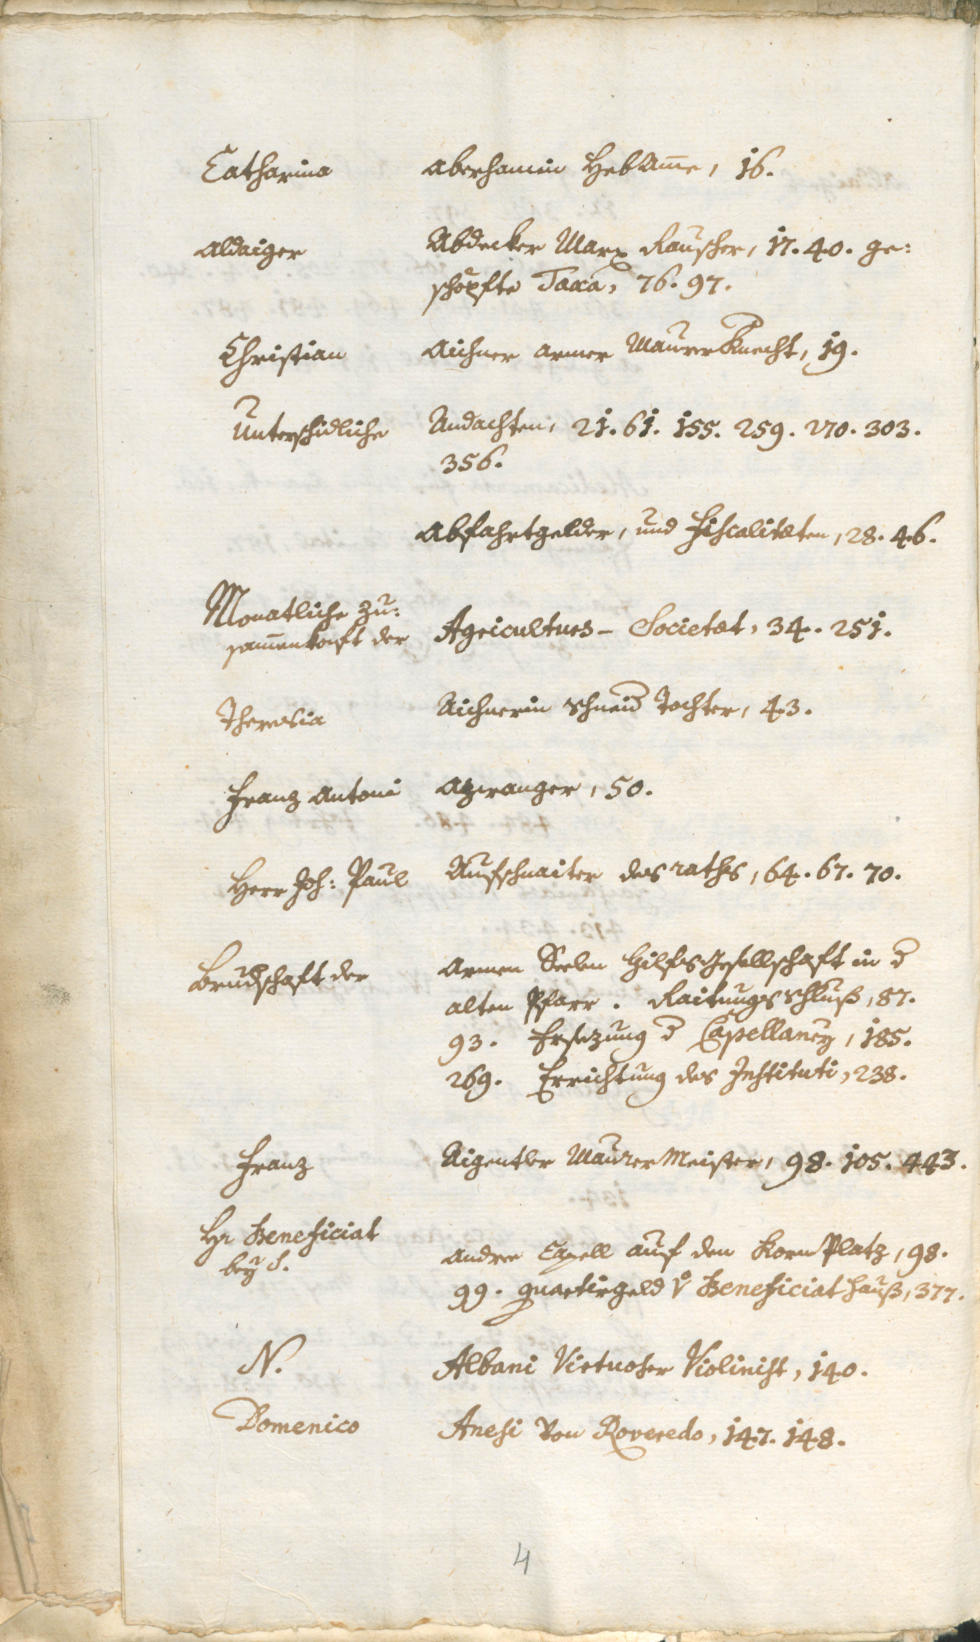 Catharina Aberhamin HebAm̄e, 16.
Aldaiger Abdecker Marx Rauscher, 17. 40. ge:
schöpfte Taxa, 76. 97.
Christian Aichner armer Maurer Knecht, 19.
Unterschidliche Andachten, 21. 61. 155. 259. 270. 303.
356.
Abfahrtgelder, und Fiscaliteten, 28. 46.
Monatliche Zu:
sam̄enkonft der Agriculturs- Societet, 34. 251.
Theresia Aichnerin Tochter, 43.
Franz Antoni Azwanger, 50.
Herr Joh: Paul Aufschnaiter des raths, 64. 67. 70.
Brudschaft der Armen Seelen Hilfsgesellschaft in d
alten Pfarr. Raitungs Schluß, 87.
93. Ersezung d Capellaney, 185.
269. Errichtung des Instituti, 238.
Franz Aigentler Maurer Meister, 98. 105. 443.
Hr Beneficiat
bey S. Andree Capell auf den Korn Platz, 98.
99. quartirgeld v Beneficiat Hauß, 377.
N. Albani Virtuoser Violinist, 140.
Domenico Anesi von Roveredo, 147. 148.
4